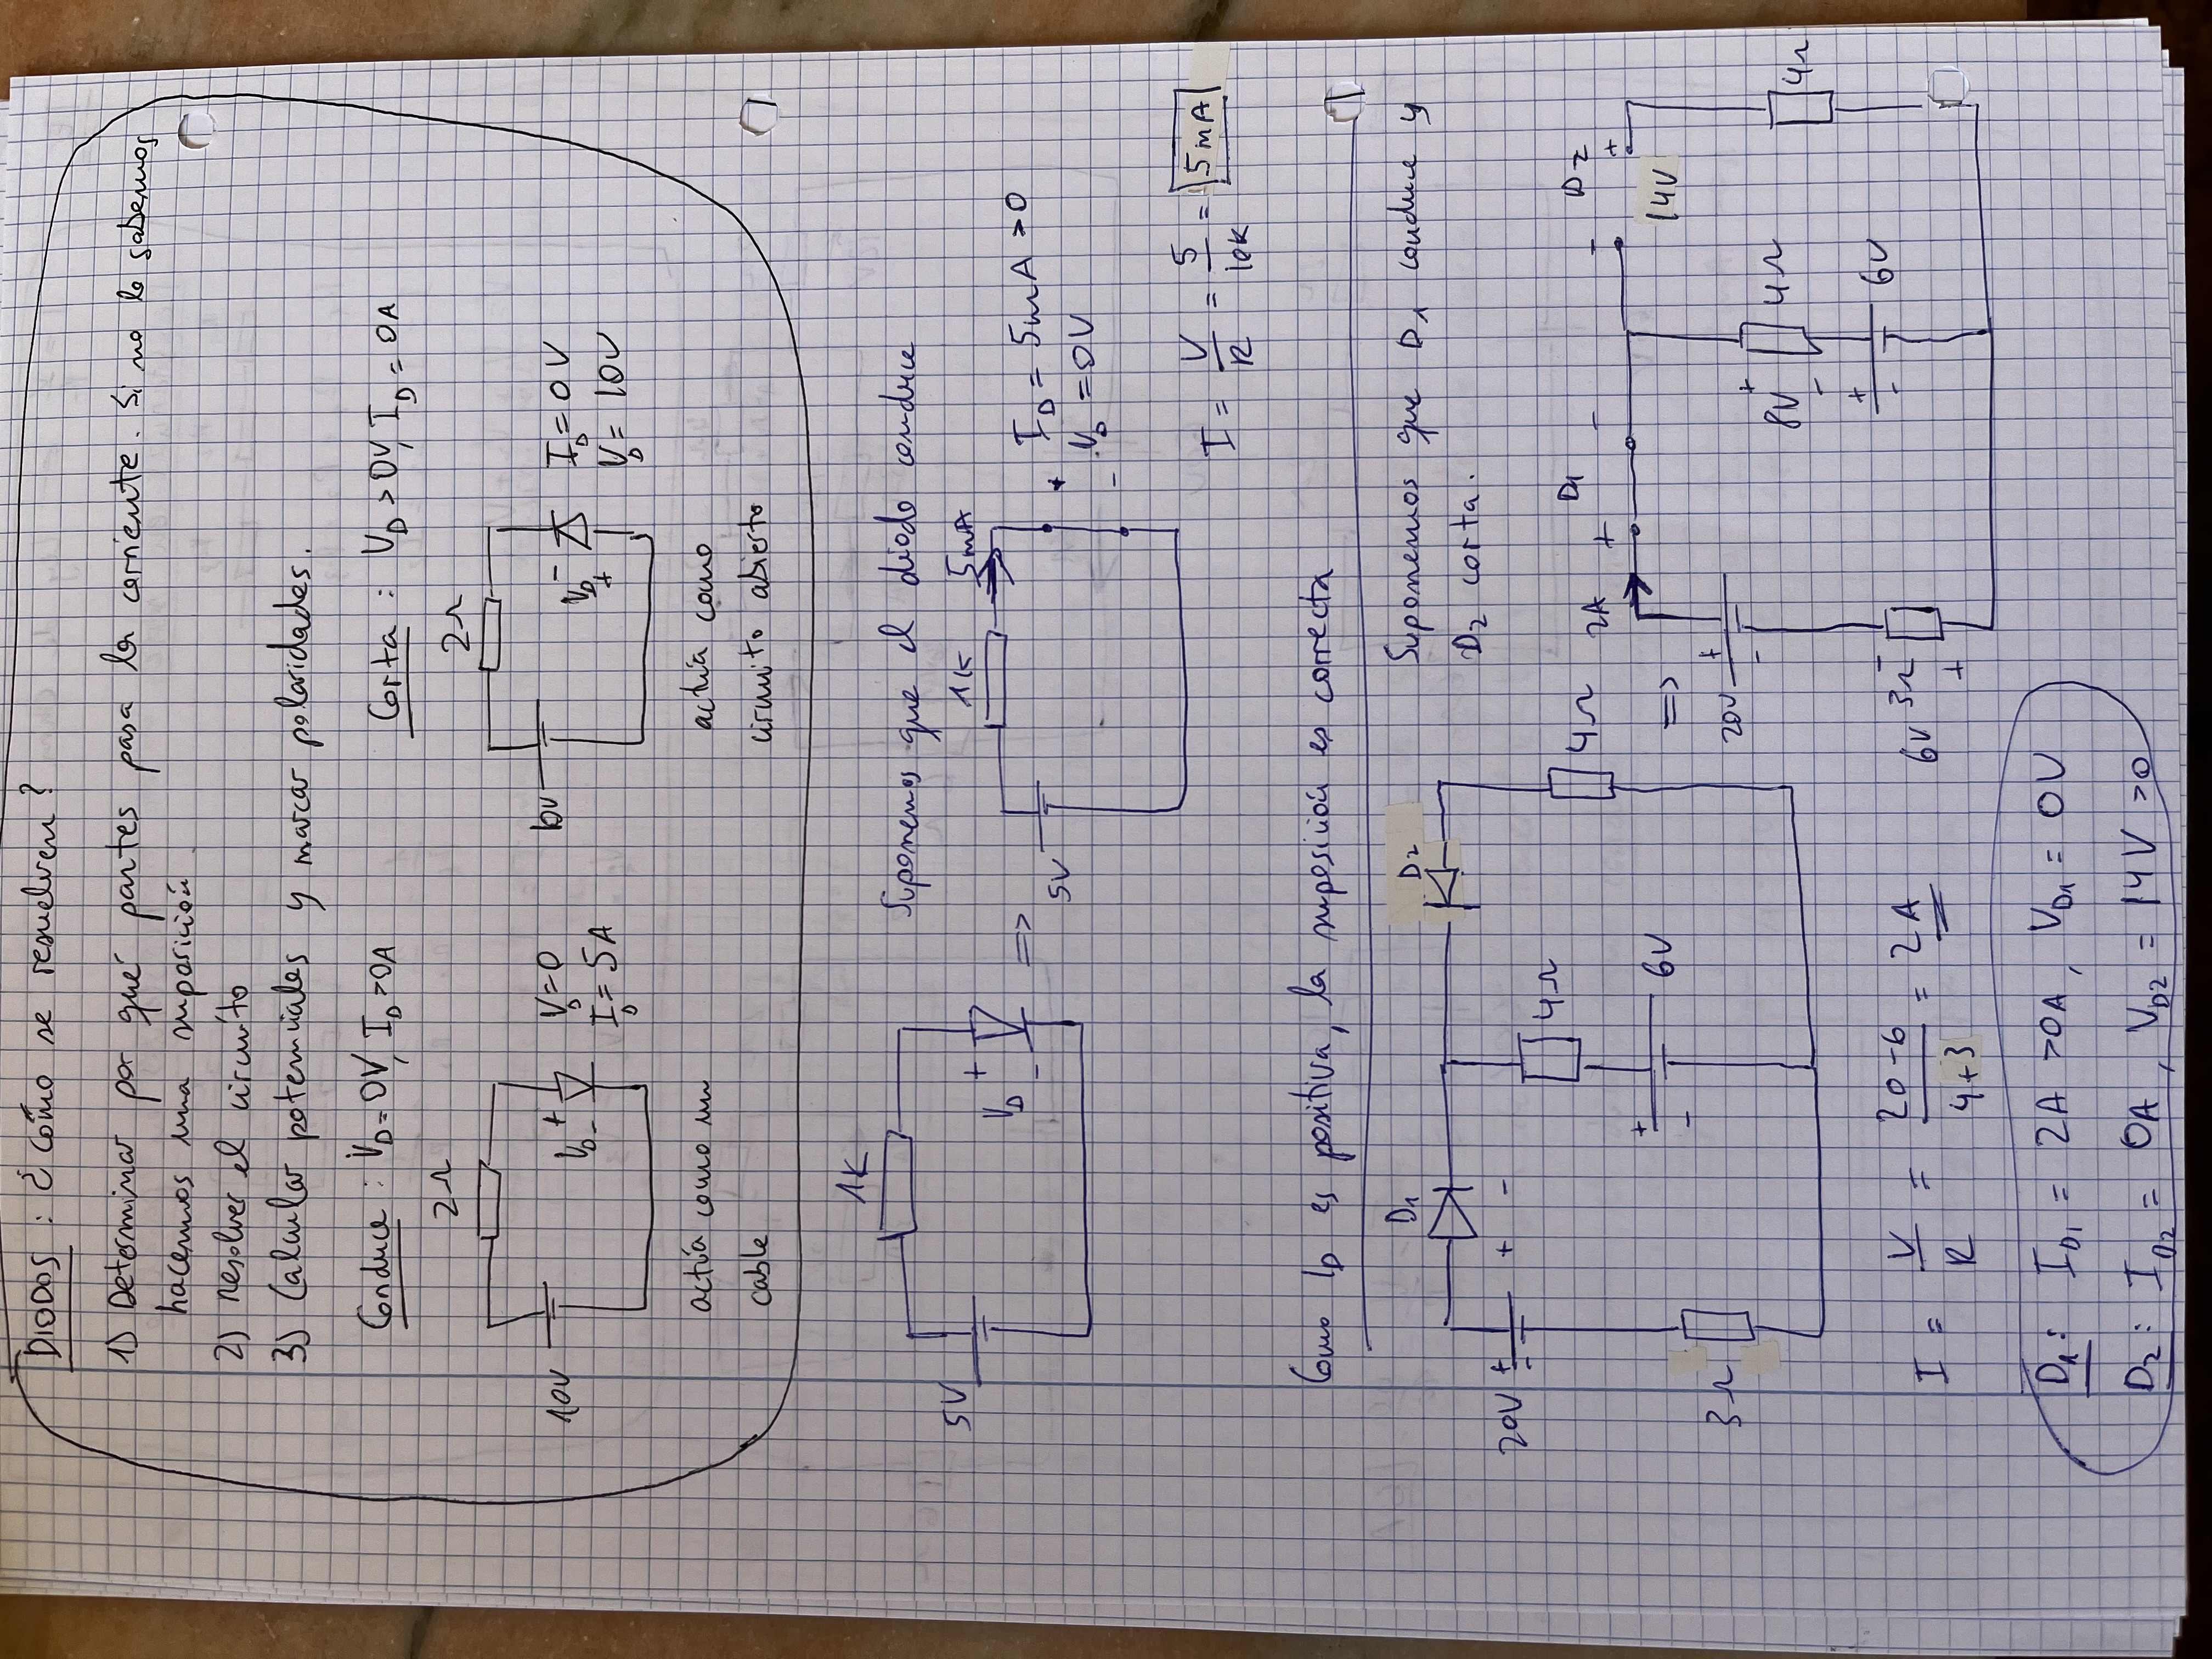 DIODOS : ¿Cómo se resuelven?
1) Determinar por qué partes pasa la corriente. Si no lo sabemos
hacemos una suposición.
2) Resolver el circuito
3) Calcular potenciales y marcar polaridades.
Conduce : V_D = 0V, I_D > 0A
Corta : V_D > 0V, I_D = 0A
2Ω
2Ω
10V
+
V_D
-
V_D = 0
I_D = 5A
10V
-
V_D
+
I_D = 0V
V_D = 10V
actúa como un
cable
actúa como
circuito abierto
1K
Suponemos que el diodo conduce
5V
+
V_D
-
=>
1K
5mA
5V
+
-
I_D = 5mA > 0
V_D = 0V
I = V/R = 5/10K = 5mA
Como I_D es positiva, la suposición es correcta
D1
D2
Suponemos que D1 conduce y
D2 corta.
20V + -
+ -
4Ω
4Ω
+
-
6V
3Ω
=>
2A
+
D1
-
-
D2
+
14V
20V
+
-
8V
+
-
4Ω
4Ω
+
-
6V
6V
3Ω
-
+
I = V/R = 20-6/4+3 = 2A
D1: I_D1 = 2A > 0A, V_D1 = 0V
D2: I_D2 = 0A, V_D2 = 14V > 0